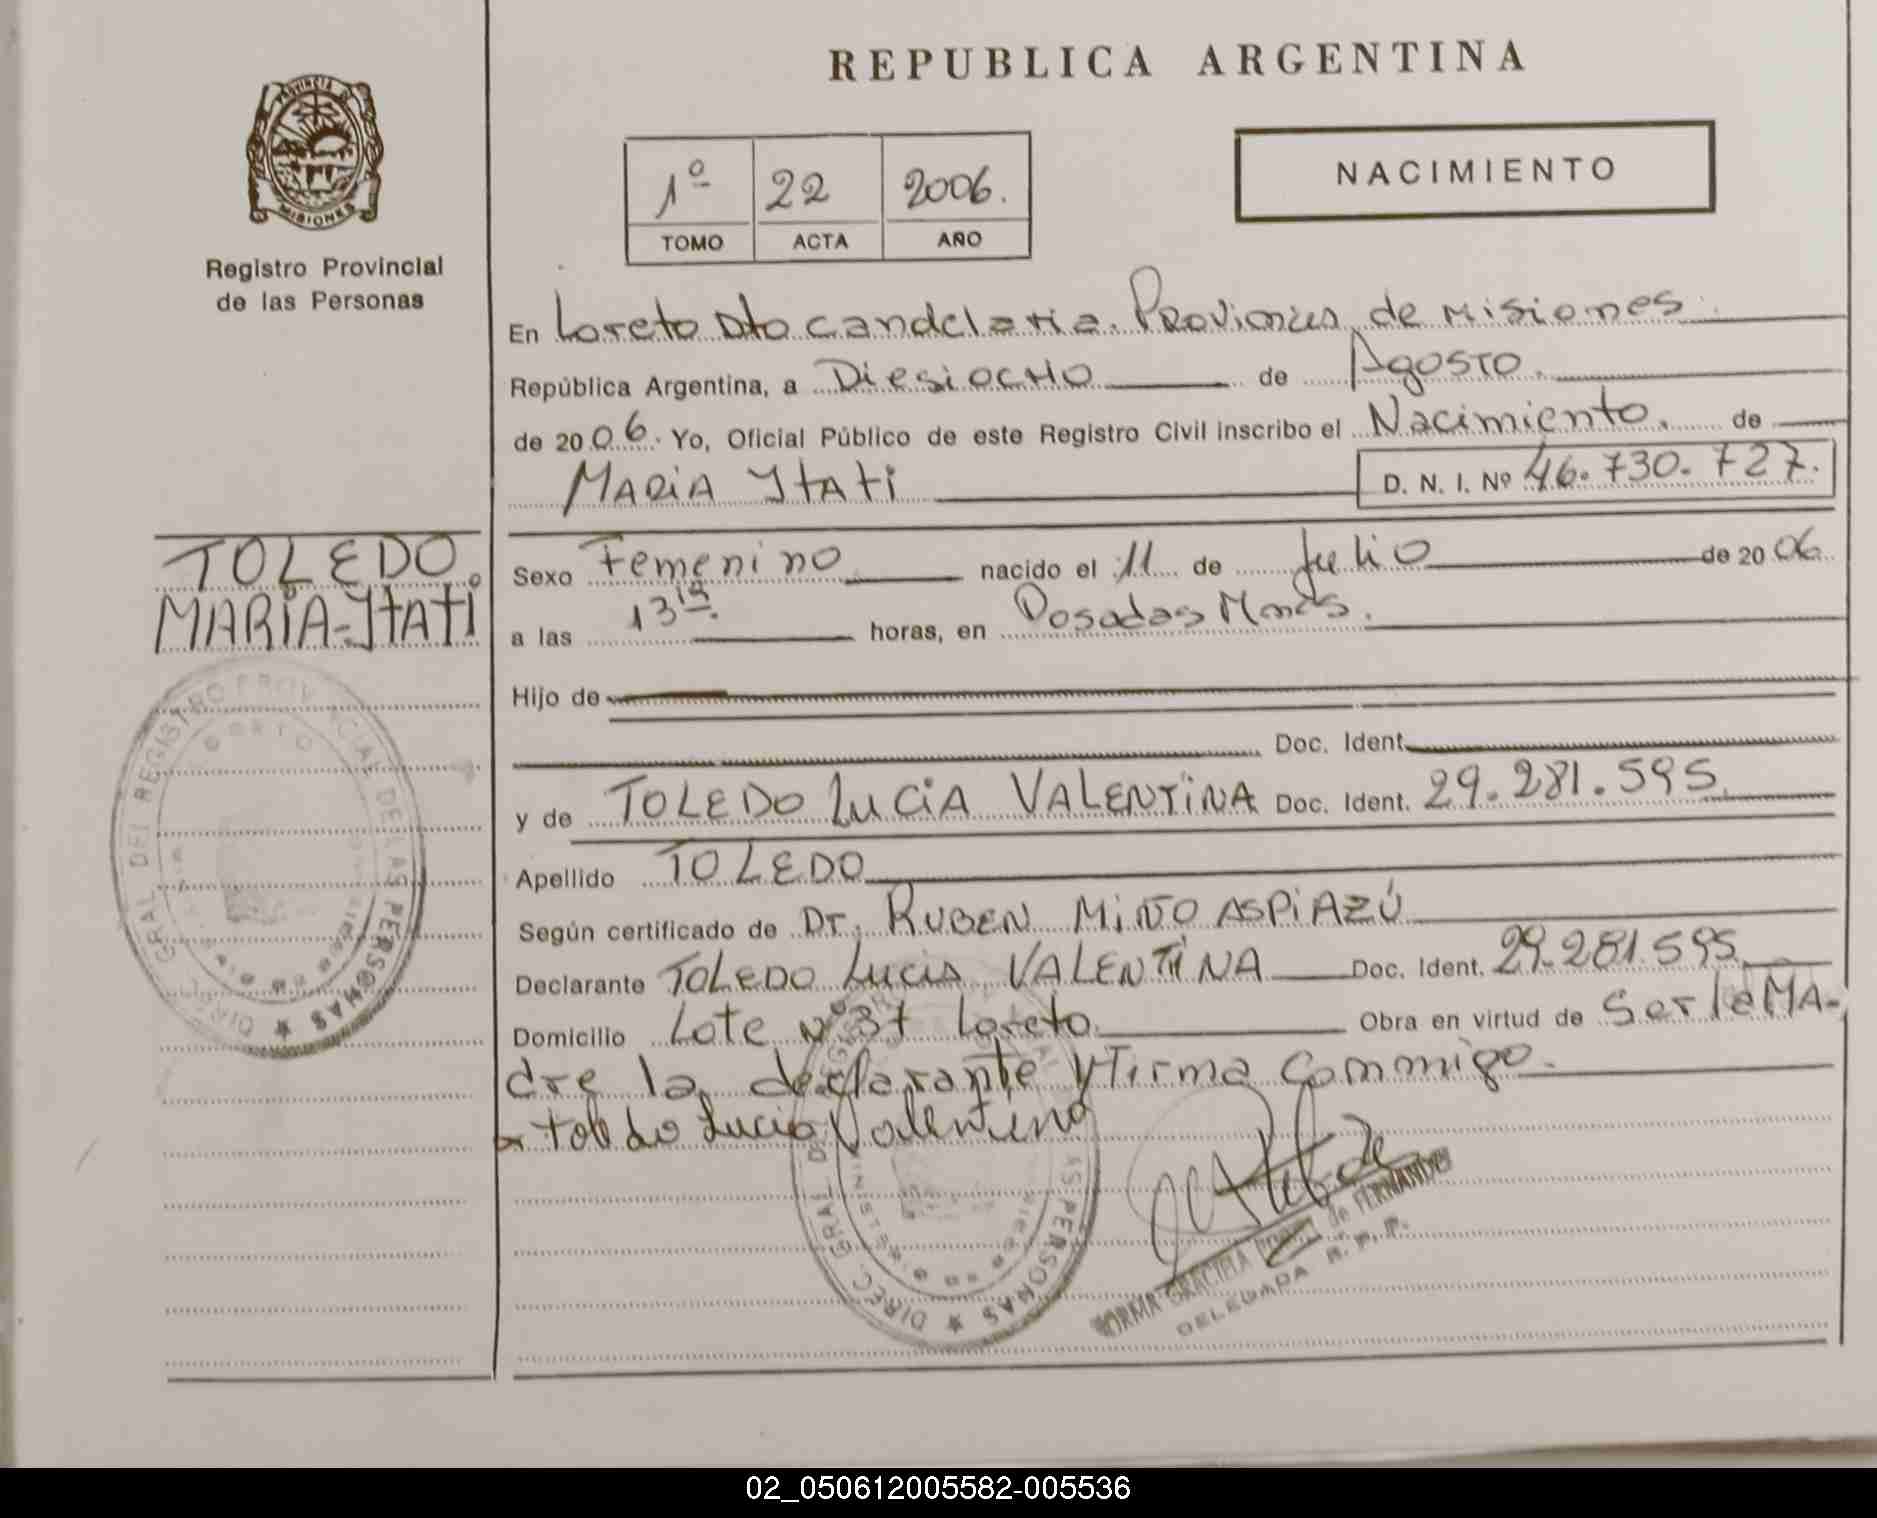 REPUBLICA ARGENTINA
PROVINCIA DE
MISIONES
Registro Provincial
de las Personas
1º 22 2006.
TOMO ACTA AÑO
NACIMIENTO
En Loreto Dto candelaria. Provincia de Misiones
República Argentina, a Diesiocho de Agosto.
de 2006. Yo, Oficial Público de este Registro Civil inscribo el Nacimiento. de
Maria Itati D. N. I. Nº 46.730.727.
TOLEDO.
MARÍA-Itati
Sexo Femenino nacido el 11 de Julio de 2006.
a las 13 horas, en Posadas Mnes.
Hijo de
Doc. Ident.
y de TOLEDO LUCiA VALENTiNA Doc. Ident. 29.281.595.
Apellido TOLEDO
Según certificado de Dr. RUBEN MIÑO ASPiAZÚ
Declarante TOLEDO Lucia VALENTiNA Doc. Ident. 29.281.595.
Domicilio Lote Nº37 Loreto. Obra en virtud de Ser la MA-
dre la declarante y Firma Conmigo.
Toledo Lucia Valentina
DIREC. GRAL. DEL REGISTRO PROVINCIAL DE LAS PERSONAS
DIREC. GRAL. PERSONAS
NORMA GRACIELA de FERNANDEZ
DELEGADA R. P. P.
02_050612005582-005536